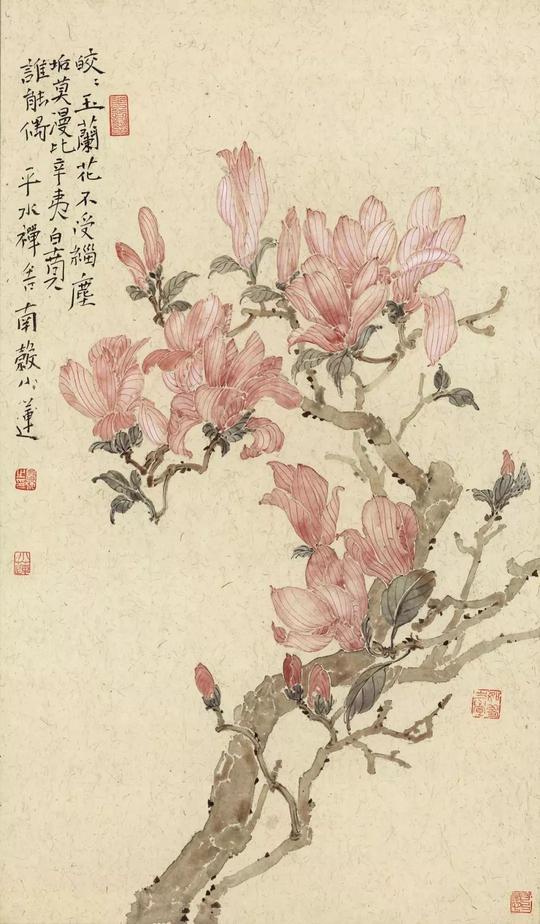 皎〻玉蘭花不受緇塵
垢莫漫比辛夷白賁
誰能偶 平水禪舍南穀小蓮